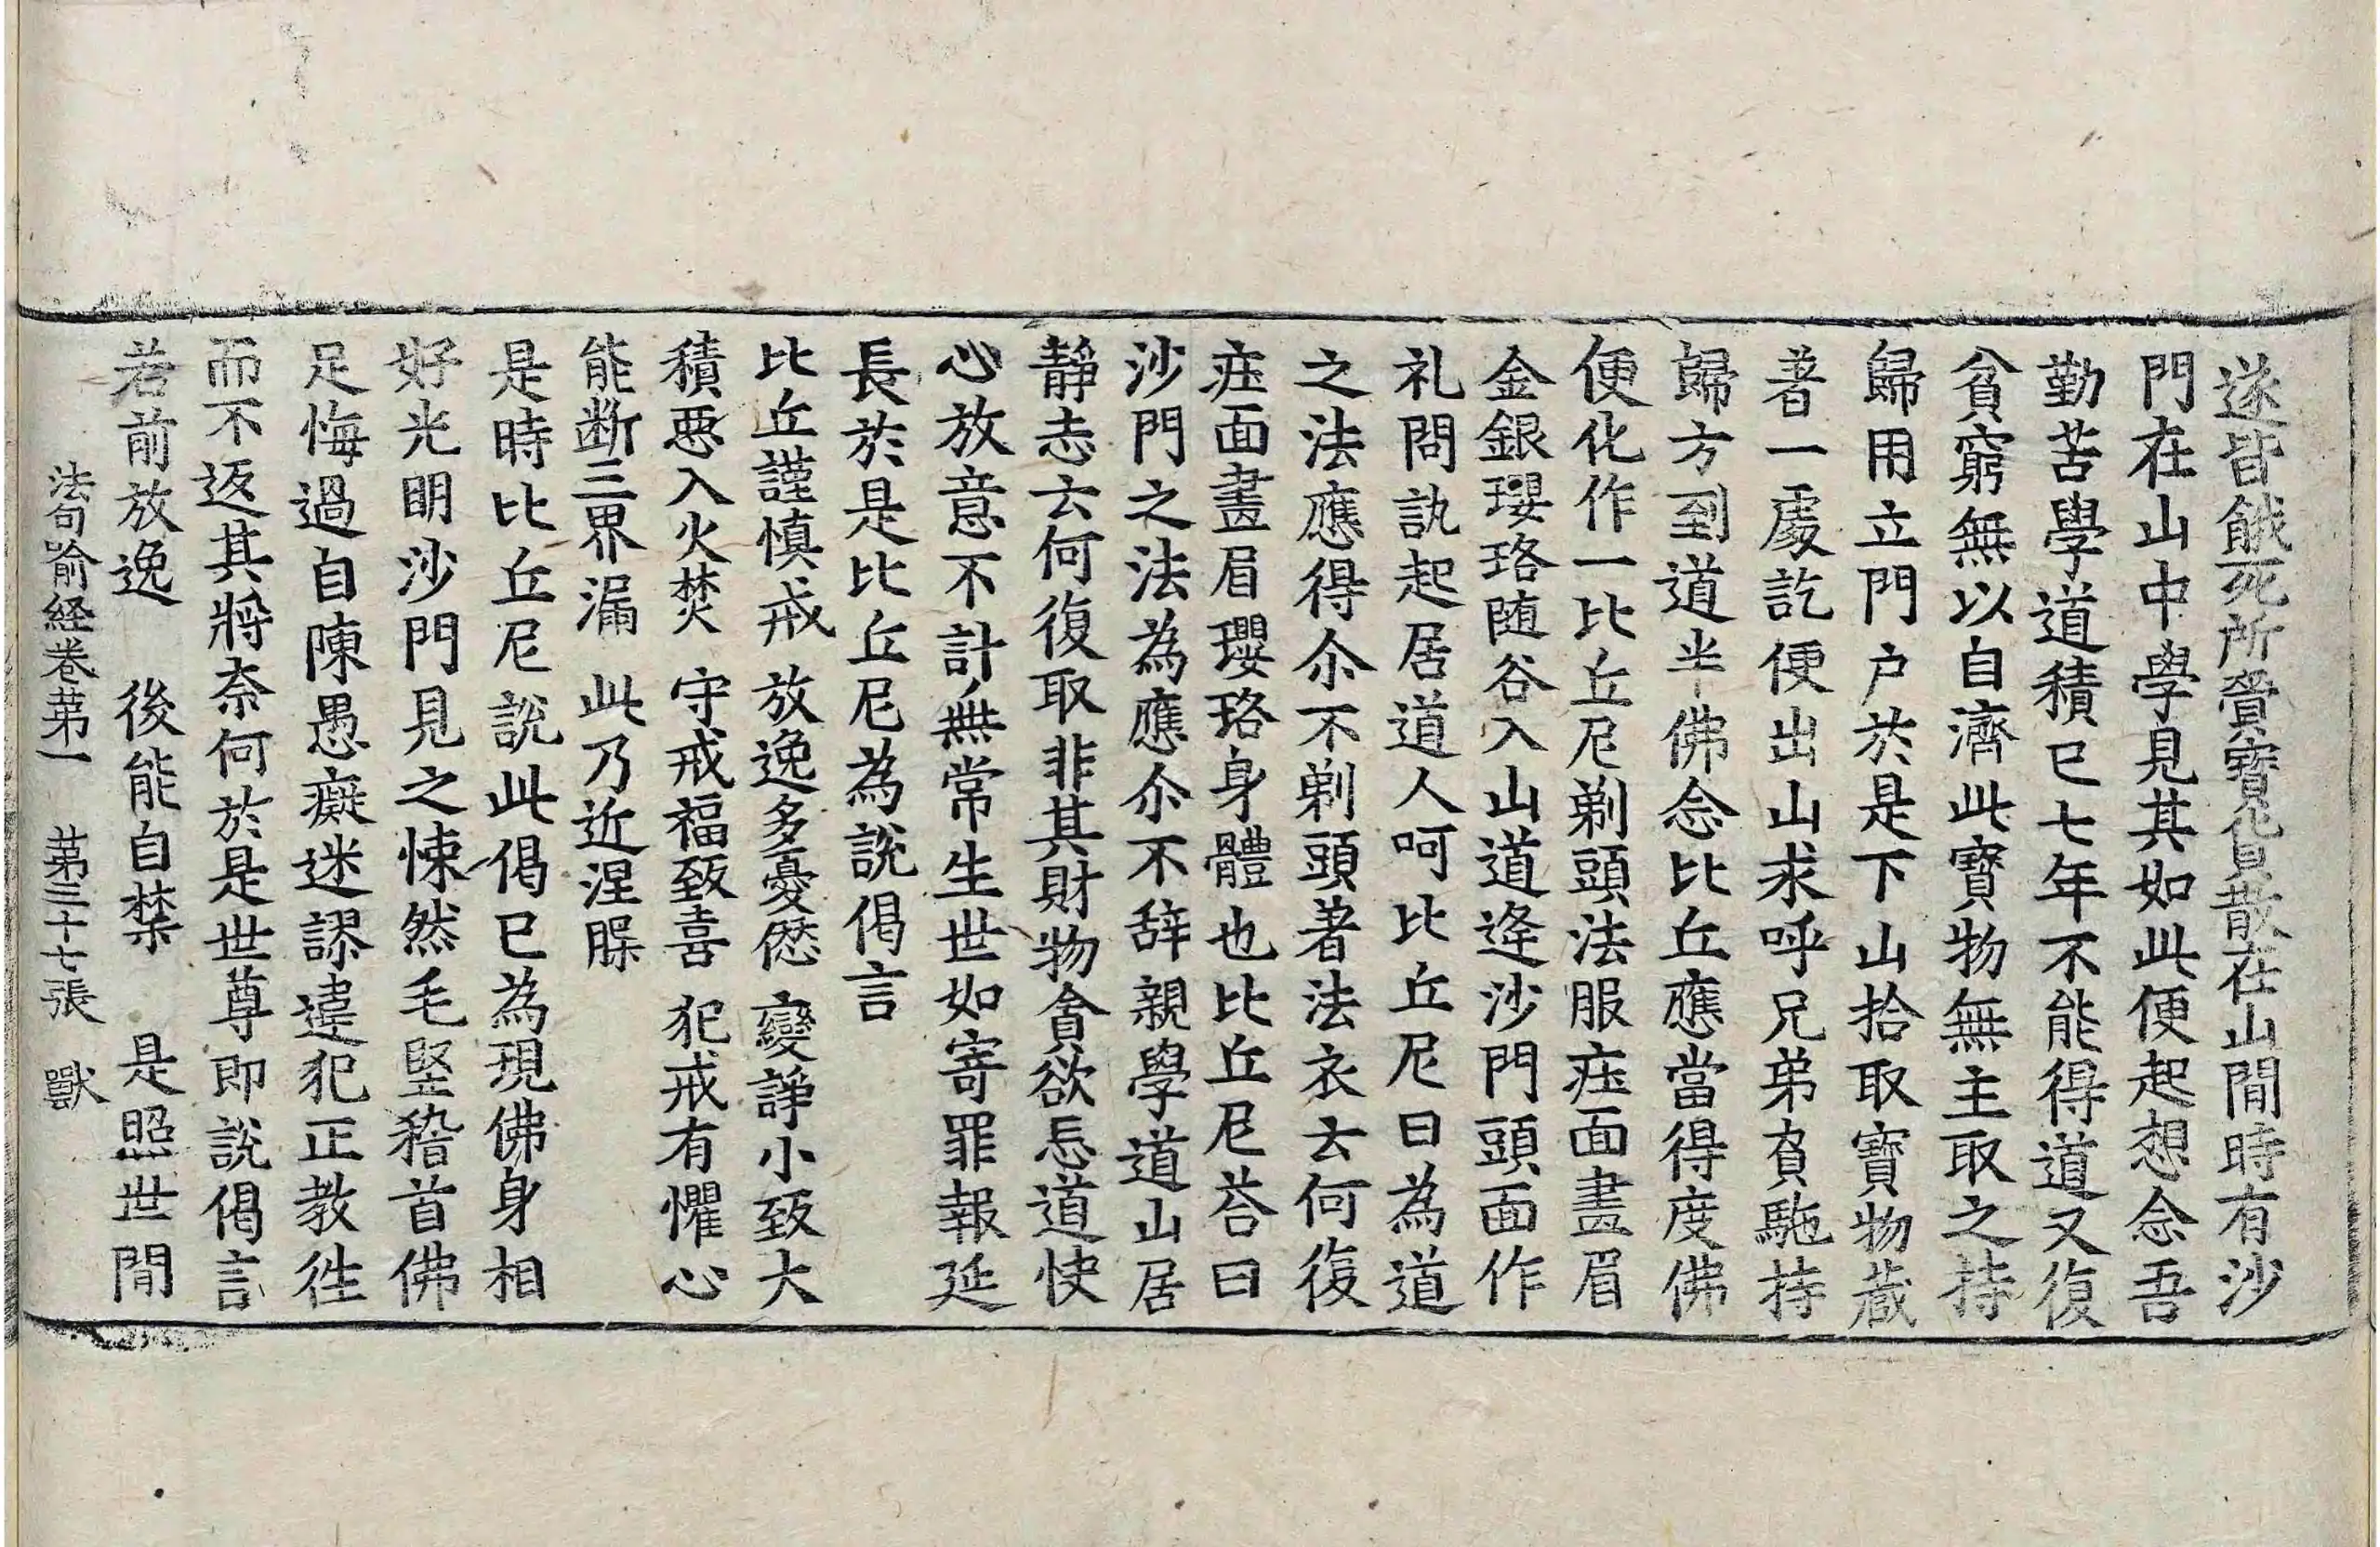 遂皆餓死所賫寶貨散在山間時有沙
門在山中學見其如此便起想念吾
勤苦學道積已七年不能得道又復
貧窮無以自濟此寶物無主取之持
歸用立門户於是下山拾取寶物藏
著一處訖便出山求呼兄弟負馳持
歸方到道半佛念比丘應當得度佛
便化作一比丘尼剃頭法服疰面畫眉
金銀瓔珞随谷入山道逢沙門頭面作
礼問訊起居道人呵比丘尼曰為道
之法應得尒不剃頭著法衣云何復
疰面畫眉瓔珞身體也比丘尼荅曰
沙門之法為應尒不辞親學道山居
静志云何復取非其財物貪欲忘道快
心放意不計無常生世如寄罪報延
長於是比丘尼為說偈言
比丘謹慎戒　放逸多憂𠎝　變諍小致大
積惡入火焚　守戒福致喜　犯戒有懼心
能断三界漏　此乃近涅槃
是時比丘尼說此偈已為現佛身相
好光明沙門見之悚然毛竪稽首佛
足悔過自陳愚癡迷謬違犯正教往
而不返其將奈何於是世尊即說偈言
若前放逸　後能自禁　是照世間
法句喻経卷苐一　苐三十七張　獸